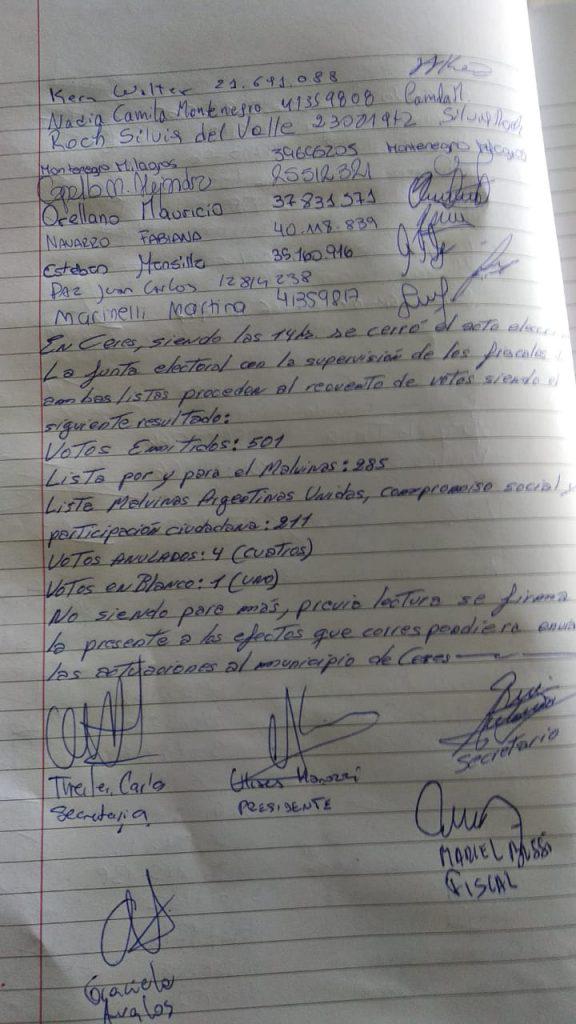 Kern Walter 21.691.088
Nadia Camila Montenegro 41359808 CamilaM.
Roch Silvia del Valle 23001942 Silvia Roch
Montenegro Milagros 39666205 Montenegro Milagros
Capello M. Alejandro 25512321
Orellano Mauricio 37831571
NAVARRO FABIANA 40.118.839
Esteban Mansilla 35.160.916
PAZ Juan Carlos 12814238
Marinelli Martina 41359817
En Ceres, siendo las 14hs. se cerró el acto elec
La junta electoral con la supervisión de los fiscales
ambas listas proceden al recuento de votos siendo el
siguiente resultado:
Votos Emitidos: 501
Lista por y para el Malvinas: 285
Lista Malvinas Argentinas Unidas, compromiso social y
participación ciudadana: 211
Votos ANULADOS: 4 (cuatros)
Votos en Blanco: 1 (uno)
No siendo para más, previa lectura se firma
la presente a los efectos que correspondiera envia
las actuaciones al municipio de Ceres
Carla
Secretaria
PRESIDENTE
Secretario
MARIEL BUSSI
FISCAL
Graciela
Avalos